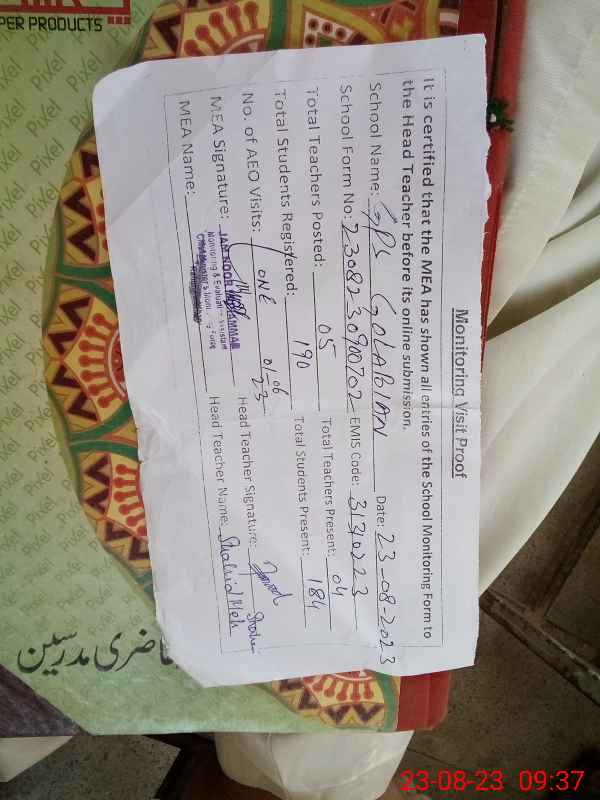 Monitoring Visit Proof
It is certified that the MEA has shown all entries of the School Monitoring Form to
the Head Teacher before its online submission.
School Name: GPS GOLABIAN Date: 23-08-2023
School Form No: 23082330900702 EMIS Code: 31340223
Total Teachers Posted: 05 Total Teachers Present: 04
Total Students Registered: 190 Total Students Present: 184
No. of AEO Visits: ONE 01-06-23 Head Teacher Signature:
MEA Signature: Head Teacher Name: Shahid
JAM NOOR MUHAMMAD
Monitoring & Evaluation Assistant
Chief Minister's Monitoring Force
MEA Name:
PER PRODUCTS
Pixel
حاضری مدرسین
23-08-23 09:37